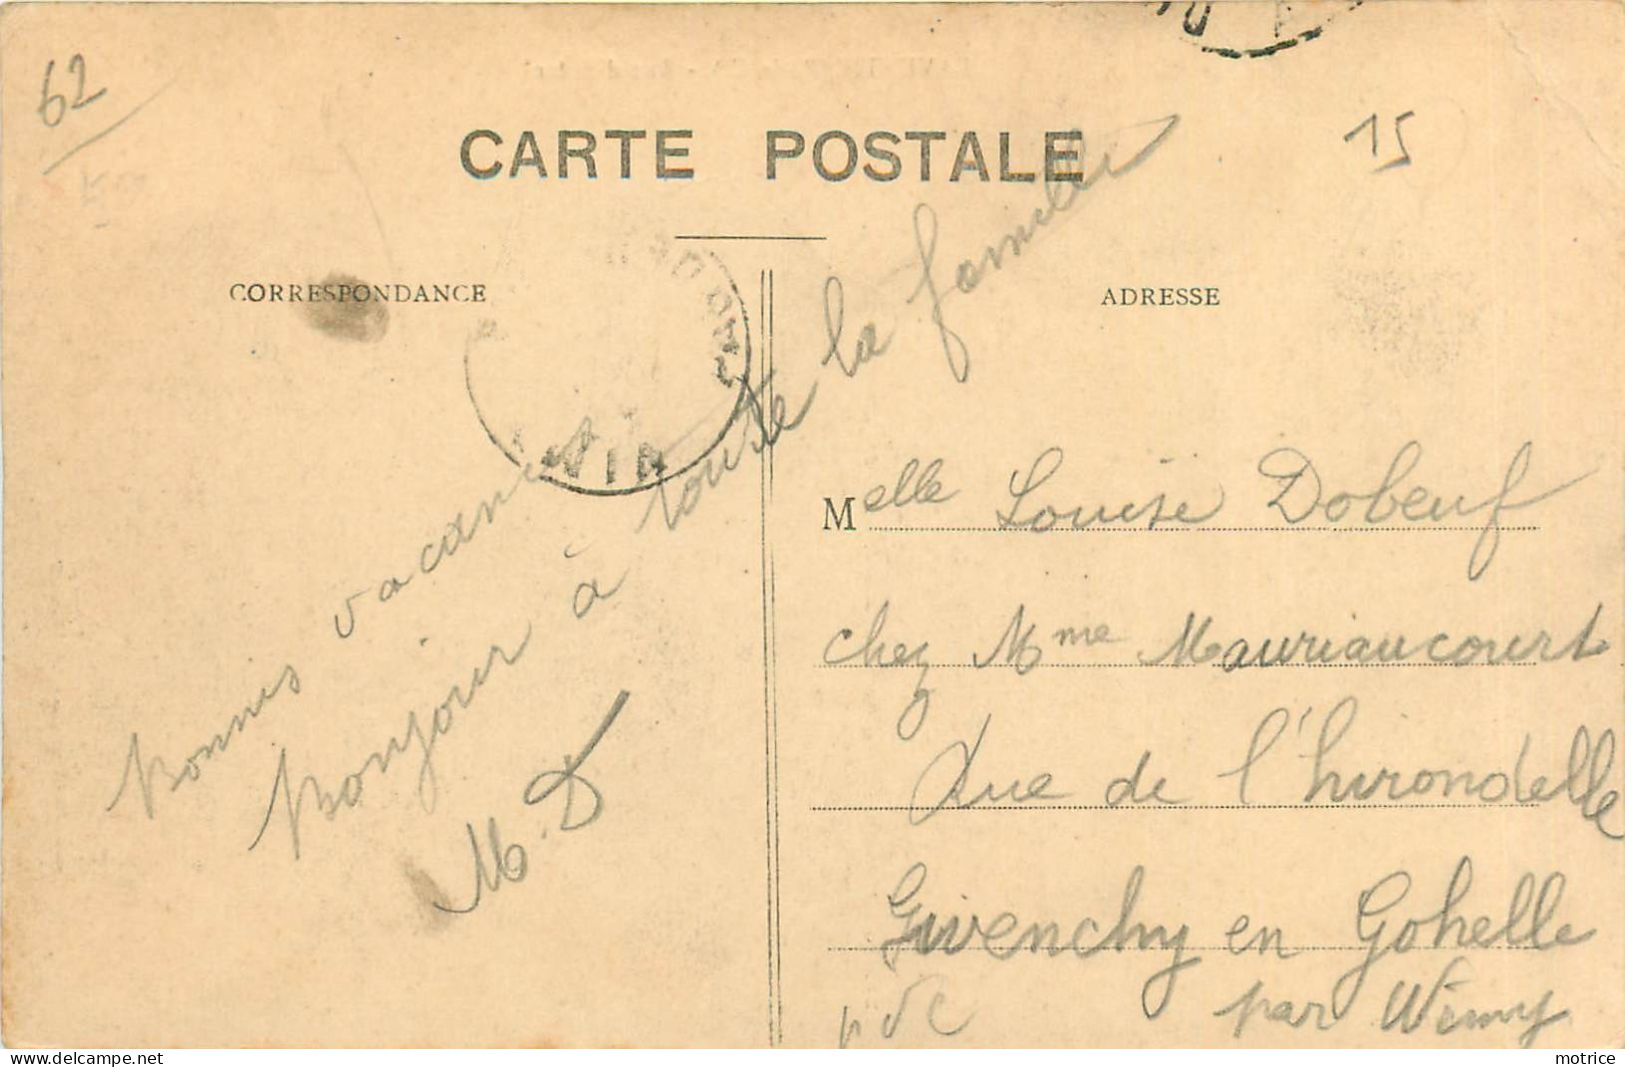 62
15
CARTE POSTALE
CORRESPONDANCE
ADRESSE
Bonnes vacances
Bonjour à toute la famille
M. D
Melle Louise Dobeuf
chez Mme Mauriaucourt
Rue de l'hirondelle
Givenchy en Gohelle
par Vimy
pdc
delcampe.net
motrice